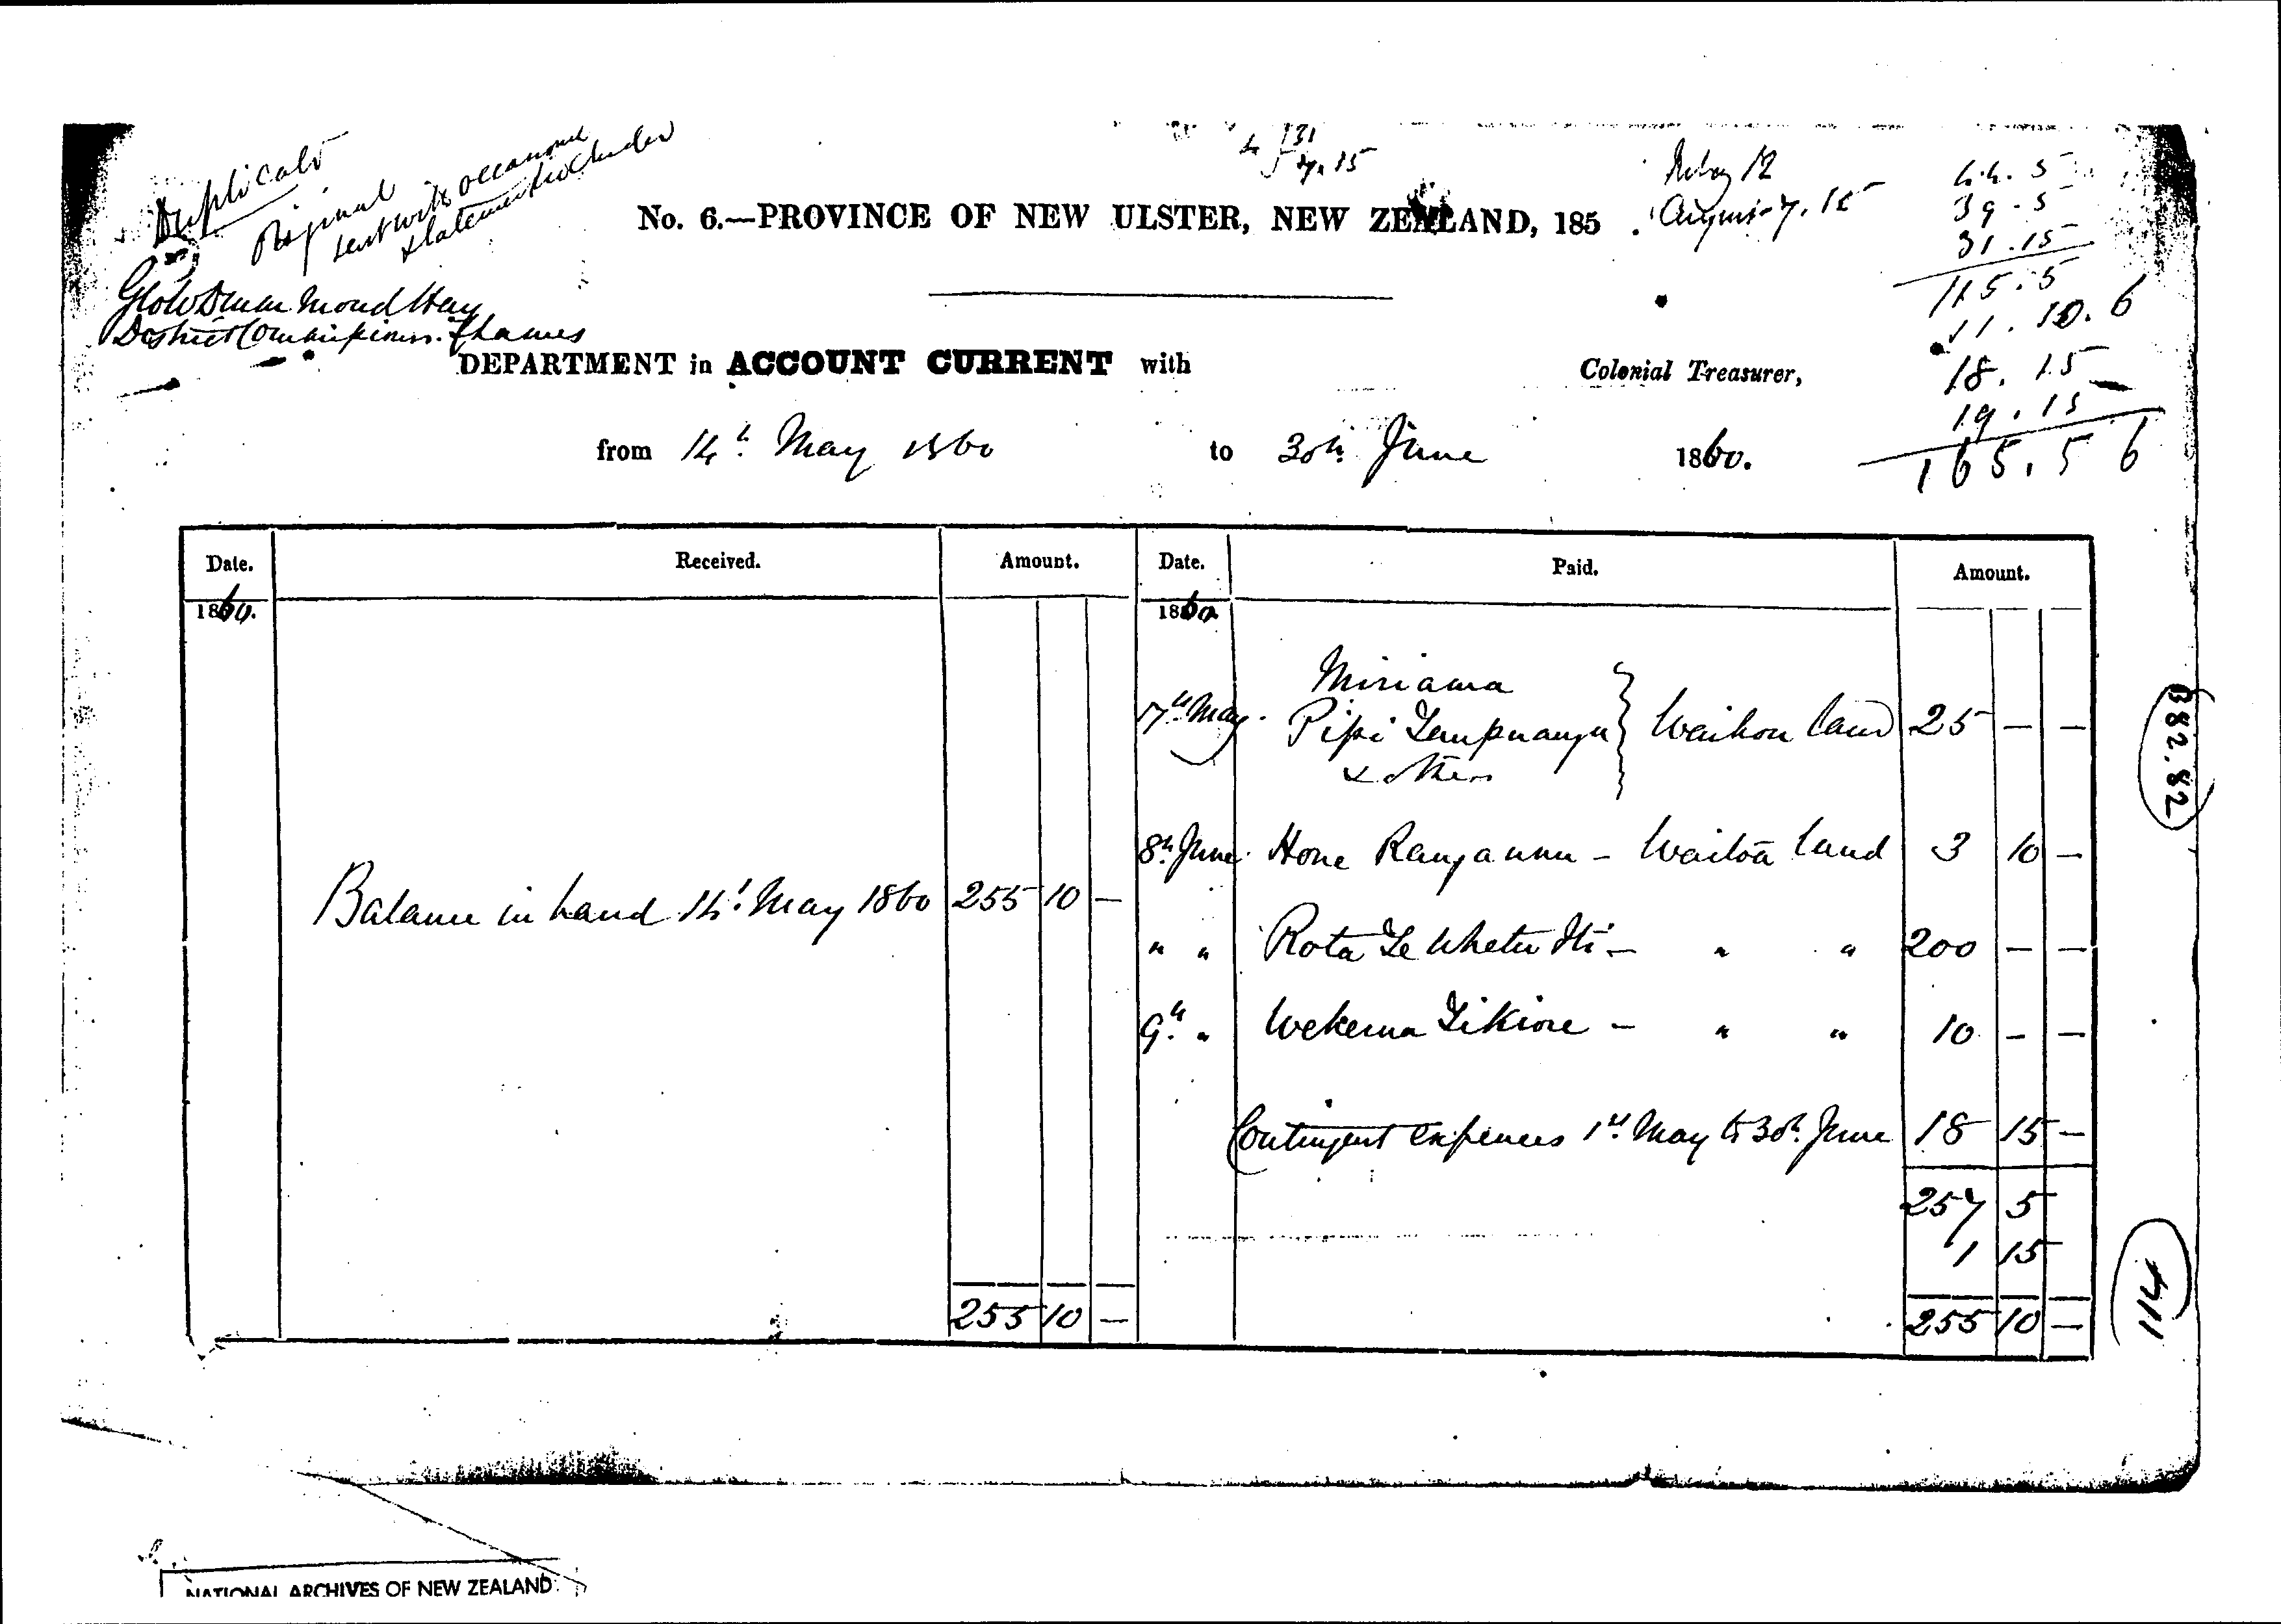 Duplicate
Original
sent with occasional
statement October
4 131
5 7.15
July 12
August 7.15
44.5
39.5
31.15
115.5
11.10.6
18.15
19.15
165.5 6
No. 6.—PROVINCE OF NEW ULSTER, NEW ZEALAND, 185 .
G Drummond Hay
District Commissioner. Thames
DEPARTMENT in ACCOUNT CURRENT with Colonial Treasurer,
from 14th May 1860 to 30th June 1860.
Date. Received. Amount. Date. Paid. Amount.
1860. 1860
Miriama
17th May. Pipi } Waihou land 25 — —
& others
8th June. Hone Rangaunu — Waitoa land 3 10 —
Balance in hand 14th May 1860 255 10 —
" " Rota Te Whetu Iti — " " 200 — —
9th " Tikiore — " " 10 — —
Contingent expences 1st May to 30th June 18 15 —
257 5
1 15
255 10 — 255 10 —
B82.82
114
NATIONAL ARCHIVES OF NEW ZEALAND